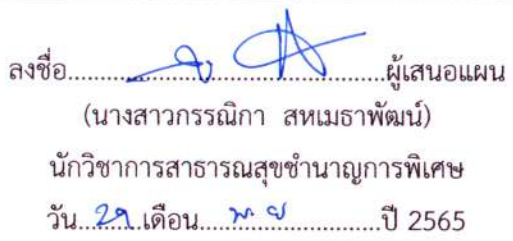 ลงชื่อ................................................ผู้เสนอแผน
(นางสาวกรรณิกา สหเมธาพัฒน์)
นักวิชาการสาธารณสุขชำนาญการพิเศษ
วัน.........เดือน...พ.ย...................ปี 2565